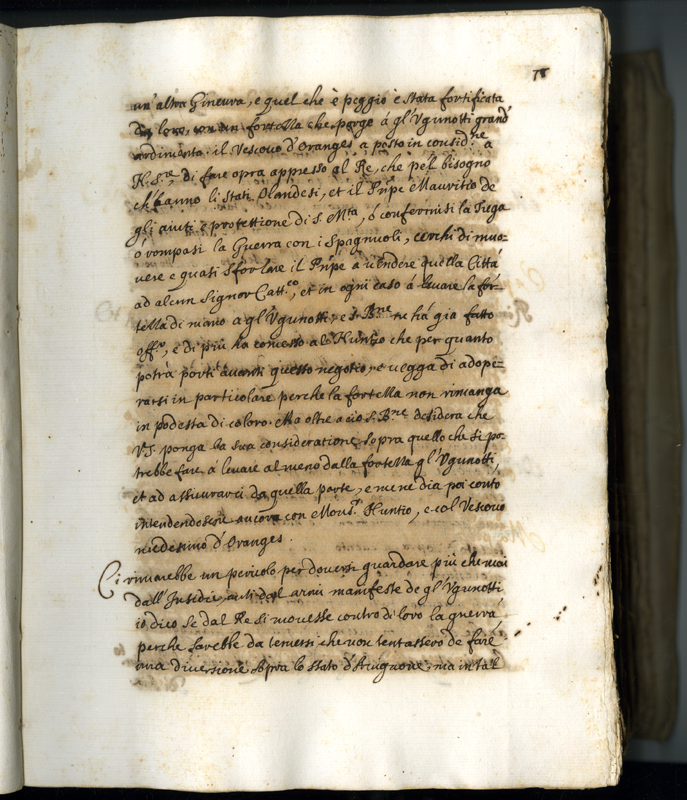 78
un'altra Gineura, e quel che è peggio è stata fortificata
da loro, con un fortella che porge á gl'Vgunotti grand'
ardimento. il Vescouo d'Oranges a posto in consid.ne a
N. S.re di fare opra appresso al Re, che pel bisogno
ch'hanno li stati Olandesi, et il Pñpe Mauritio de
gli aiuti e protettione di S. M.ta, ó confermisi la Tregua
ó rompasi la Guerra con i Spagnuoli, cerchi di muo-
uere e quasi sforzare il Pñpe a vendere quella Città
ad alcun Signor Catt.co, et in ogni caso á leuare la for-
tella di mano a gl'Vgunotti, e S. B.ne n'há gia fatto
off.o, e di più ha comesso al Nuntio che per quanto
potrà porti auanti questo negotio, e vegga di adope-
rarsi in particolare perche la fortella non rimanga
in podestà di coloro. Ma oltre a ciò S. B.ne desidera che
V.S. ponga la sua consideratione sopra quello che si po-
trebbe fare á leuare almeno dalla fortella gl'Vgunotti,
et ad assicurarci da quella parte, e me ne dia poi conto
intendendosene ancora con Mons.r Nuntio, e col Vescouo
medesimo d'Oranges.
Ci rimarebbe un pericolo per douersi guardare più che mai
dall'Insidie, dal armi manifeste de gl'Vgunotti
io dico se dal Re si mouesse contro di loro la guerra,
perche sarebbe da temersi che non tentassero de fare
una diuersione sopra lo stato d'Auignone, ma in tal